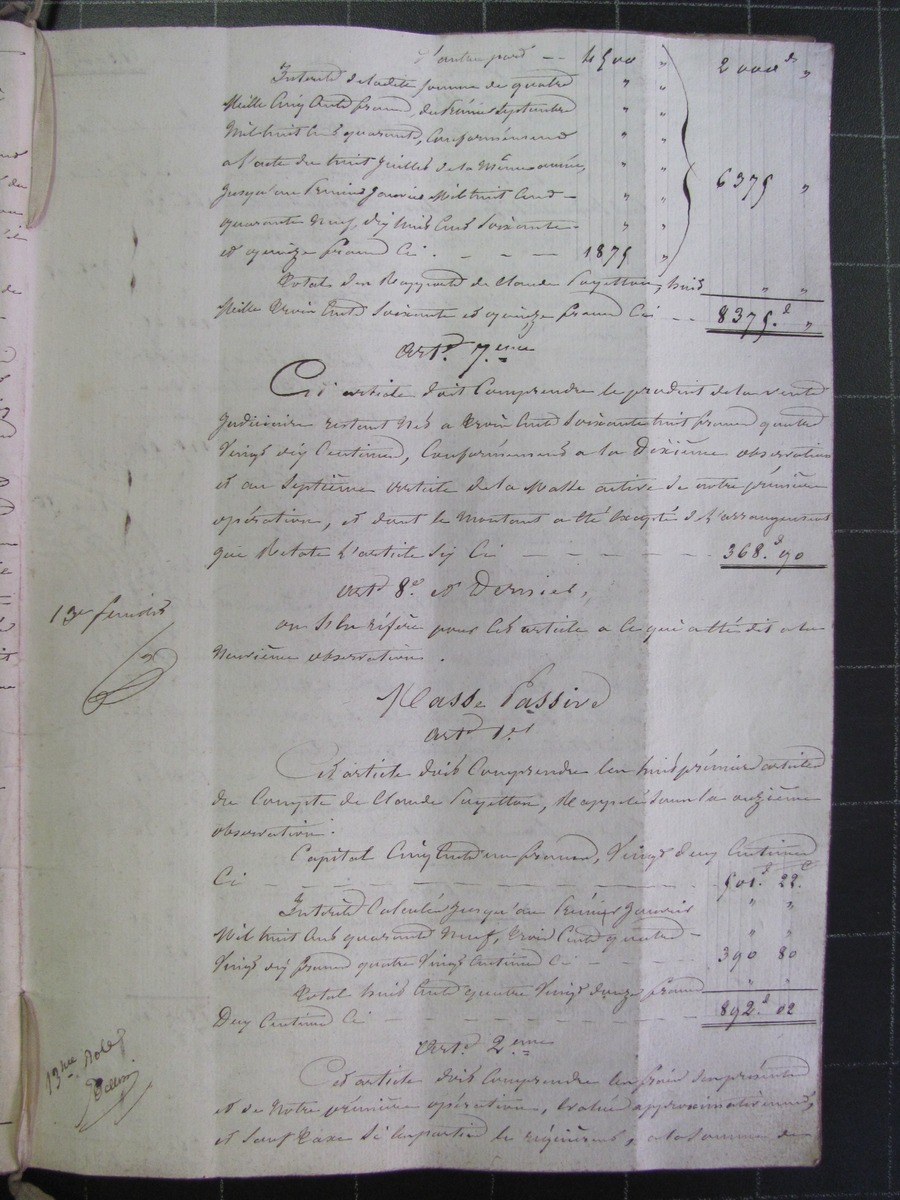 D'autre part — 4500 " 2000 f "
Intérêts de ladite somme de quatre " "
Mille Cinq Cents francs, du Prémier Septembre " "
Mil huit cent quarante, Conformément " "
a l'acte du huit Juillet de la Même année, " "
Jusqu'au Prémier Janvier Mil huit Cent " " 6375 "
quarante neuf, dix huit Cent Soixante " "
et quinze francs Ci . — — — 1875 "
Total des Rapports de Claude Payetton, huit " "
Mille Trois Cents Soixante et quinze francs Ci — — 8375 f "
Art. 7.eme
Cet article doit Comprendre le produit de la vente
Judiciaire restant Nets a Trois Cents Soixante huit francs quatre
Vingt dix Centimes, Conformément a la Dixième observation
et au Septième article de la Masse active de notre prémière
opération, et dont le Montant a été Excepté de L'arrangement
que Relate L'article Six Ci — — — — — 368 f 90
art. 8.e et Dernier,
on S'en réfère pour Cet article a Ce qui a été dit a la
Neuvième observation .
13e
Masse Passive
art. 1er
Cet article doit Comprendre les huit prémiers articles
du Compte de Claude Payetton, Rappelés Sous la onzième
observation .
Capital Cinq Cent un francs, Vingt deux Centimes
Ci — — — — — — — — 501 f 22 c
Intérêts Calculés Jusqu'au Prémier Janvier " "
Mil huit Cent quarante Neuf, Trois Cent quatre " "
Vingt dix francs quatre Vingt Centimes Ci — — — 390 80
Total huit Cent quatre Vingt douze francs " "
Deux Centimes Ci — — — — — — 892 f 02
Art. 2.eme
13me Role
Cet article doit Comprendre les frais des présentes
et de Notre prémière opération, évalués approximativement,
et Sauf Taxe Si les parties le réquièrent, a la Somme de